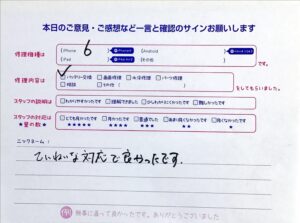 本日のご意見・ご感想など一言と確認のサインお願いします
修理機種は
iPhone 6
Android
iPad
その他
です。
修理内容は
✓バッテリー交換 画面修理 水没修理 パーツ修理
その他
をしてもらいました。
スタッフの説明は
わかりやすかったです 理解できました 少しわかりにくかったです 難しかったです
スタッフの対応は
★星の数★
とても良かったです 良かったです 普通でした あまり良くなかったです 良くなかったです
★★★★★ ★★★★ ★★★ ★★ ★
ニックネーム:
ていねいな対応で良かったです。
無事に直って良かったです。ありがとうございました